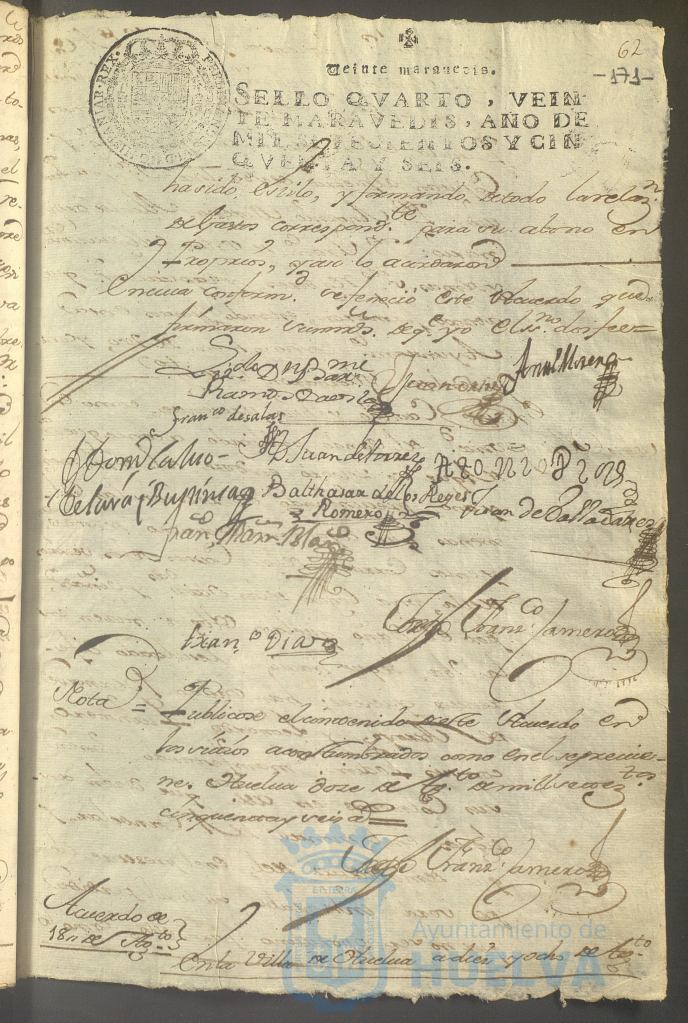 62
-171-
Veinte maravedis.
SELLO QVARTO, VEIN-
TE MARAVEDIS, AÑO DE
MIL SETECIENTOS Y CIN
QVENTA Y SEIS.
ha sido estilo, y formando de todo la relaz.n
de Gastos correspond.te para su abono en
Proprios, y asi lo acordaron
En cuia conform.d se feneció este Acuerdo que
firmaron sus mrds. de q.e yo el ss.no doi fee=
Juan
Fran.co de salas
Juan de torres
Balthasar de los Reyes
Romero
Juan de Valladares
Fran.co Marn. Blan
Fran.co Diaz
Fran.co Camero
Nota =
Publicose el contenido de este Acuerdo en
los sitios acostumbrados como en el se previe-
ne. Huelva doze de Ag.to de mill setez.tos
cinquenta y seis a.s =
Fran.co Camero
Acuerdo de
18 de Ag.to
En la Villa de Huelva a dies y ocho de Ag.to
EN TERRA
Ayuntamiento de
HUELVA